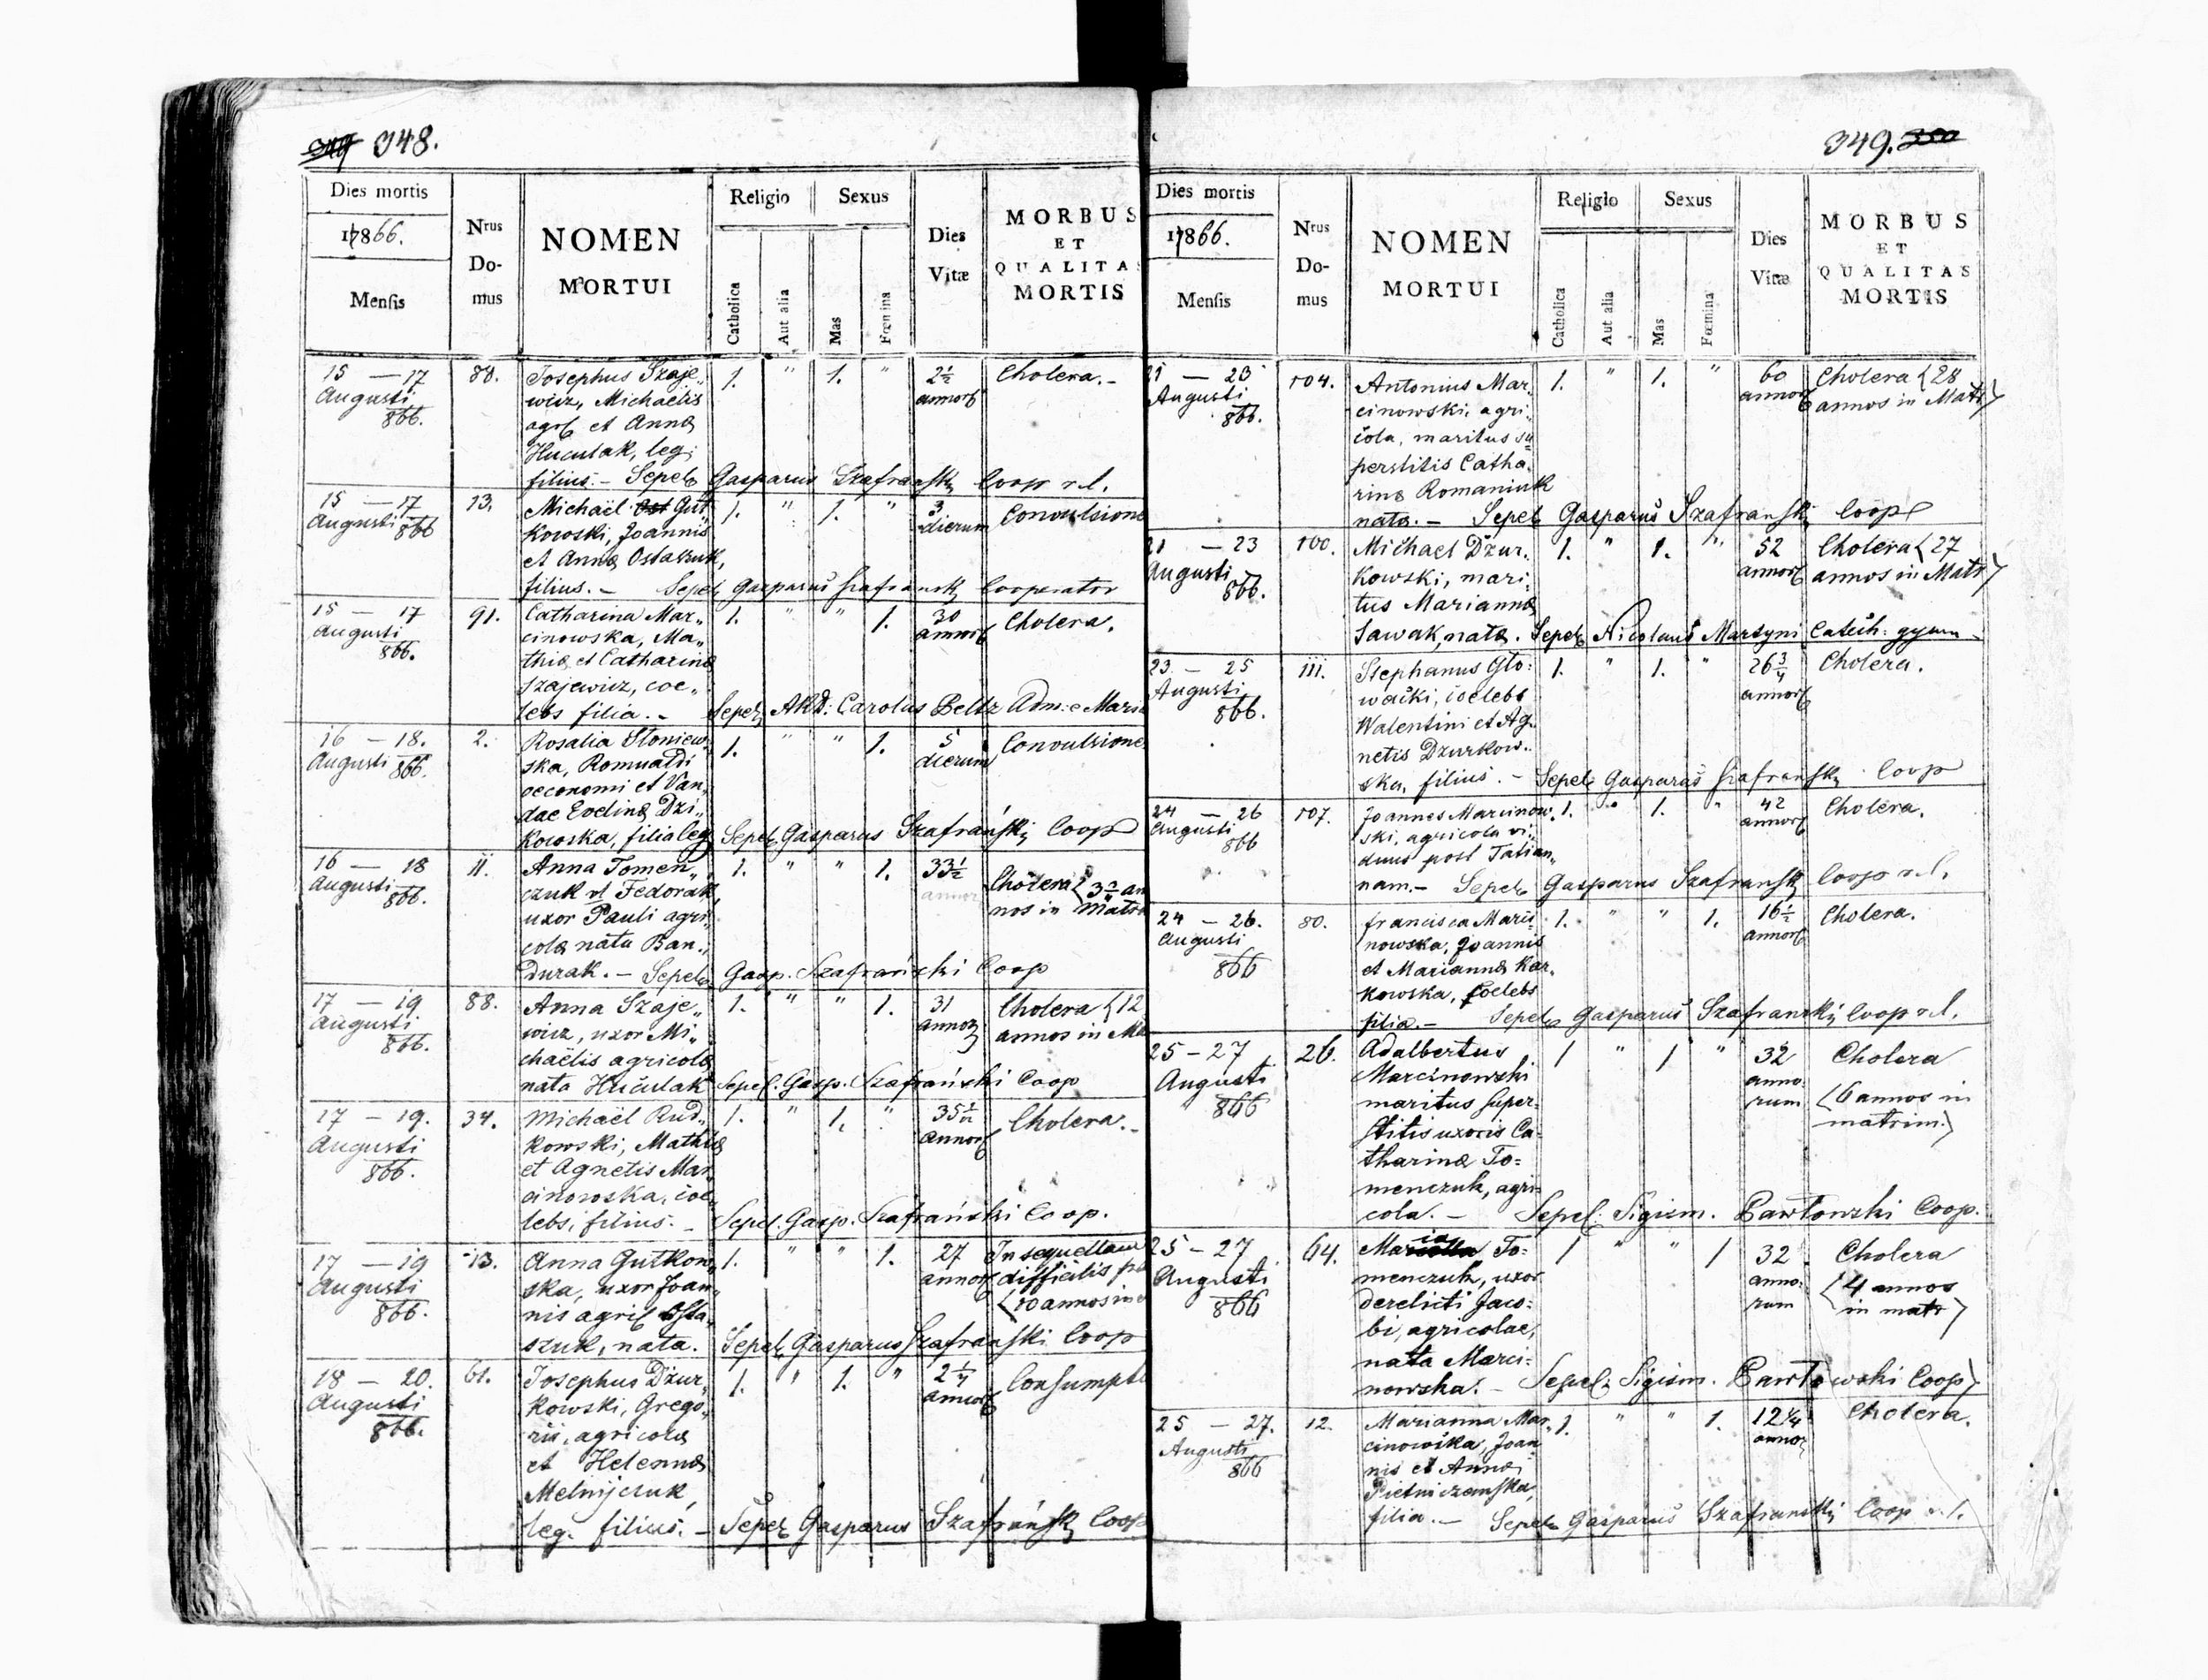 348.
Dies mortis
1866.
Mensis
Nrus
Do-
mus
NOMEN
MORTUI
Religio
Catholica
Aut alia
Sexus
Mas
Fœmina
Dies
Vitæ
MORBUS
ET
QUALITAS
MORTIS
15 — 17
Augusti
866.
88.
Josephus Szaje„
wicz, Michaelis
agrc et Annæ
Huculak, leg.
filius. — Sepel Gasparus Szafranski Coop r.l.
1. " 1. "
2½
annor
Cholera. -
15 — 17
Augusti 866
13.
Michaël Gut
kowski, Joannis
et Annæ Ostaszuk,
filius. — Sepel Gasparus Szafranski Cooperator
1. " 1. "
3
dierum
Convulsione
15 — 17
Augusti
866.
91.
Catharina Mar„
cinowska, Ma„
thiæ et Catharinæ
Szajewicz, coe„
lebs filia. - Sepel ARD: Carolus Beltz Adm:
1. " " 1.
30
annor
Cholera.
16 — 18.
Augusti 866.
2.
Rosalia Stoniew„
ska, Romualdi
oeconomi et Van„
dae Evelinæ Dzi„
kowska, filia leg Sepel Gasparus Szafrański Coop
1. " " 1.
5
dierum
Convulsione
16 — 18
Augusti 866.
11.
Anna Tomen„
czuk vl Fedorak,
uxor Pauli agri„
colæ nata Ban„
durak. — Sepel Gasp. Szafrański Coop
1. " " 1.
33½
annor
Cholera
nos in Matr
17 — 19
Augusti
866.
88.
Anna Szaje„
wicz, uxor Mi„
chaëlis agricolæ
nata Huculak Sepel. Gasp. Szafrański Coop
1. " " 1.
31
annor
Cholera (12
annos in Ma
17 — 19.
Augusti
866.
34.
Michaël Rud„
kowski, Mathiæ
et Agnetis Mar„
cinowska, coe„
lebs, filius. - Sepel. Gasp. Szafrański Coop.
1. " 1. "
annor
Cholera. -
17 — 19
Augusti
866.
13.
Anna Gutkow„
ska, uxor Joan„
nis agric Osta„
szuk, nata. Sepel Gasparus Szafranski Coop
1. " " 1.
27
annor
In sequellam
difficilis
(10 annos in
18 — 20.
Augusti
866.
61.
Josephus Dzur„
kowski, Grego„
rii, agricolæ
et Helennæ
Melnijczuk,
leg. filius. - Sepel Gasparus Szafrański Coop
1. " 1. "
2¼
annor
Consumpti
349.
Dies mortis
1866.
Mensis
Nrus
Do-
mus
NOMEN
MORTUI
Religio
Catholica
Aut alia
Sexus
Mas
Fœmina
Dies
Vitæ
MORBUS
ET
QUALITAS
MORTIS
21 — 23
Augusti
866.
104.
Antonius Mar„
cinowski, agri„
cola, maritus su
perstitis Catha„
rinæ Romaniuk
nata. — Sepel Gasparus Szafranski Coop
1. " 1. "
60
annor
Cholera (28
annos in Matr)
21 — 23
Augusti
866.
100.
Michael Dzur„
kowski, mari„
tus Mariannæ
Sawak, nata. Sepel Nicolaus Martyni Catech: gymn
1. " 1. "
52
annor
Cholera (27
annos in Matr)
23 — 25
Augusti
866.
111.
Stephanus Glo„
wacki, coelebs
Walentini et Ag„
netis Dzurkow„
ska, filius. - Sepel Gasparus Szafranski Coop
1. " 1. "
26¾
annor
Cholera.
24 — 26
Augusti
866
107.
Joannes Marcinow„
ski, agricola vi„
duus post Tatian„
nam. - Sepel Gasparus Szafranski Coop r.l.
1. " 1. "
42
annor
Cholera.
24 — 26.
Augusti
866
80.
Francisca Marci„
nowska, Joannis
et Mariannæ Kar„
kowska, Coelebs
filia. - Sepel Gasparus Szafranski Coop r.l.
1. " " 1.
16½
annor
Cholera.
25 — 27
Augusti
866
26.
Adalbertus
Marcinowski
maritus super=
stitis uxoris Ca=
tharinæ To=
menczuk, agri=
cola. - Sepel. Sigism. Pawłowski Coop.
1 " 1 "
32
anno
rum
Cholera
(6 annos in
matrim.)
25 — 27
Augusti
866
64.
Maria To=
menczuk, uxor
derelicti Jaco=
bi, agricolae,
nata Marci=
nowska. - Sepel. Sigism. Pawłowski Coop
1 " " 1
32
anno
rum
Cholera
(4 annos
in matr)
25 — 27.
Augusti
866
12.
Marianna Mar„
cinowska, Joan„
nis et Annæ
Pietniczanska,
filia. - Sepel Gasparus Szafranski Coop r.l.
1. " " 1.
12¼
annor
Cholera.